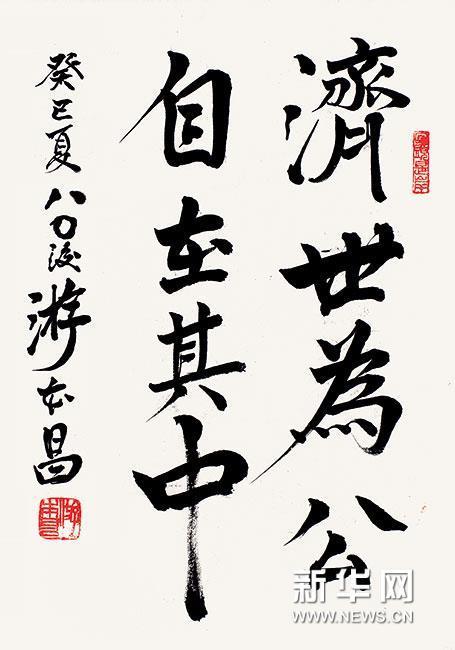 濟世為公
自在其中
癸巳夏八〇後游本昌
新华网
WWW.NEWS.CN